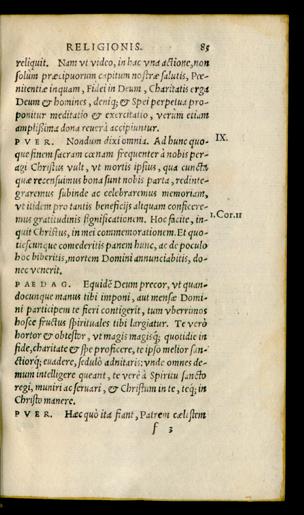 RELIGIONIS. 85
reliquit. Nam vt video, in hac vna actione, non
solùm præcipuorum capitum nostræ salutis, Pœ-
nitentiæ inquam, Fidei in Deum, Charitatis erga
Deum & homines, deniq; & Spei perpetua pro-
ponitur meditatio & exercitatio, verùm etiam
amplissima dona reuerà accipiuntur.
PVER. Nondum dixi omnia. Ad hunc quo- IX.
que finem sacram cœnam frequenter à nobis per-
agi Christus vult, vt mortis ipsius, qua cuncta
quæ recensuimus bona sunt nobis parta, redinte-
graremus subinde ac celebraremus memoriam,
vt itidem pro tantis beneficijs aliquam conficere-
mus gratitudinis significationem. Hoc facite, in- 1.Cor.11
quit Christus, in mei commemorationem. Et quo-
tiescunque comederitis panem hunc, ac de poculo
hoc biberitis, mortem Domini annunciabitis, do-
nec venerit.
PAEDAG. Equidē Deum precor, vt quan-
docunque manus tibi imponi, aut mensæ Domi-
ni participem te fieri contigerit, tum vberrimos
hosce fructus spirituales tibi largiatur. Te verò
hortor & obtestor, vt magis magisq; quotidie in
fide, charitate & spe proficere, te ipso melior san-
ctiorq; euadere, sedulò adnitaris: vnde omnes de-
mum intelligere queant, te verè à Spiritu sancto
regi, muniri ac seruari, & Christum in te, teq; in
Christo manere.
PVER. Hæc quò ita fiant, Patrem cælestem
f 3